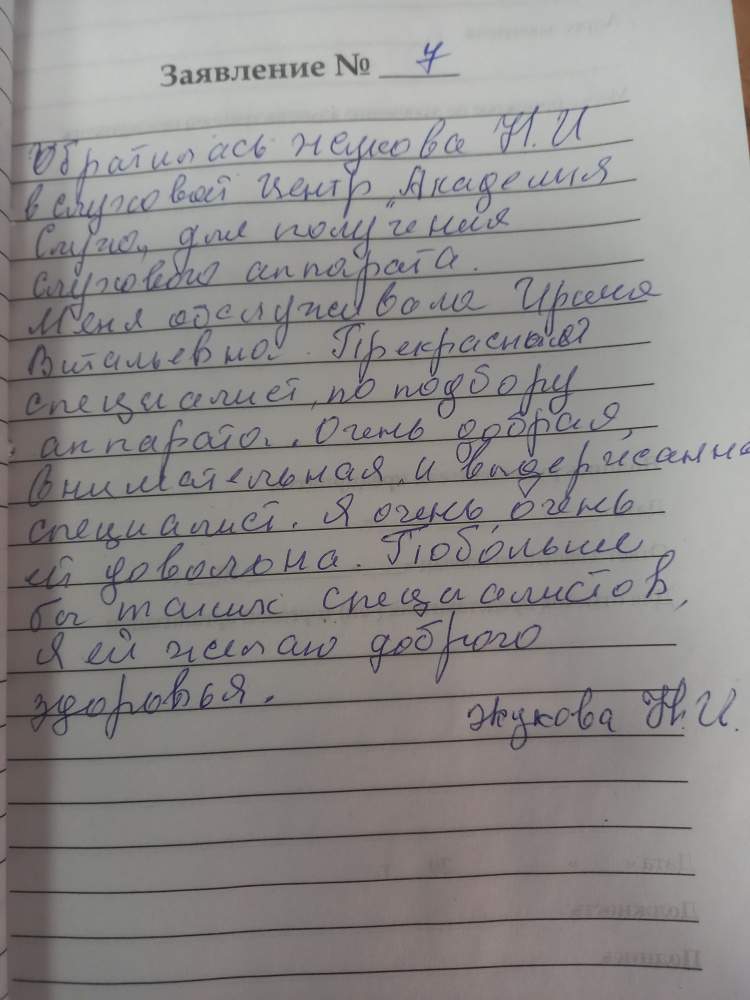 Заявление № 7
Обратилась Жукова Н.И
в слуховой центр „Академия
Слуха„ для получения
слухового аппарата.
Меня обслуживала Ирина
Витальевна. Прекрасный
специалист, по подбору
аппарата. Очень добрая,
внимательная и выдержанна
специалист. Я очень очень
ей довольна. Побольше
бы таких специалистов,
Я ей желаю доброго
здоровья.
Жукова Н.И.
Дата «
Должность
Подпись